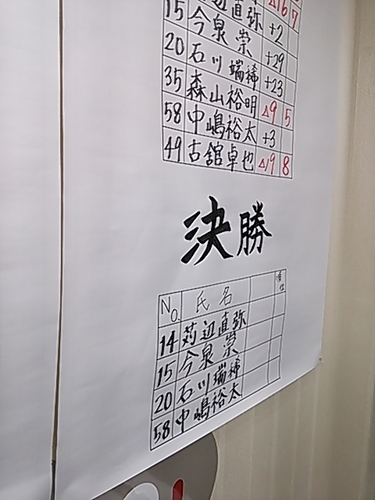 △16 7
15 今泉 崇 +2
20 石川 瑞稀 +29
35 森山裕明 +23
58 中嶋裕太 △9 5
49 古舘卓也 +3
△19 8
決勝
No. 氏名
14 苅辺直弥
15 今泉 崇
20 石川 瑞稀
58 中嶋裕太